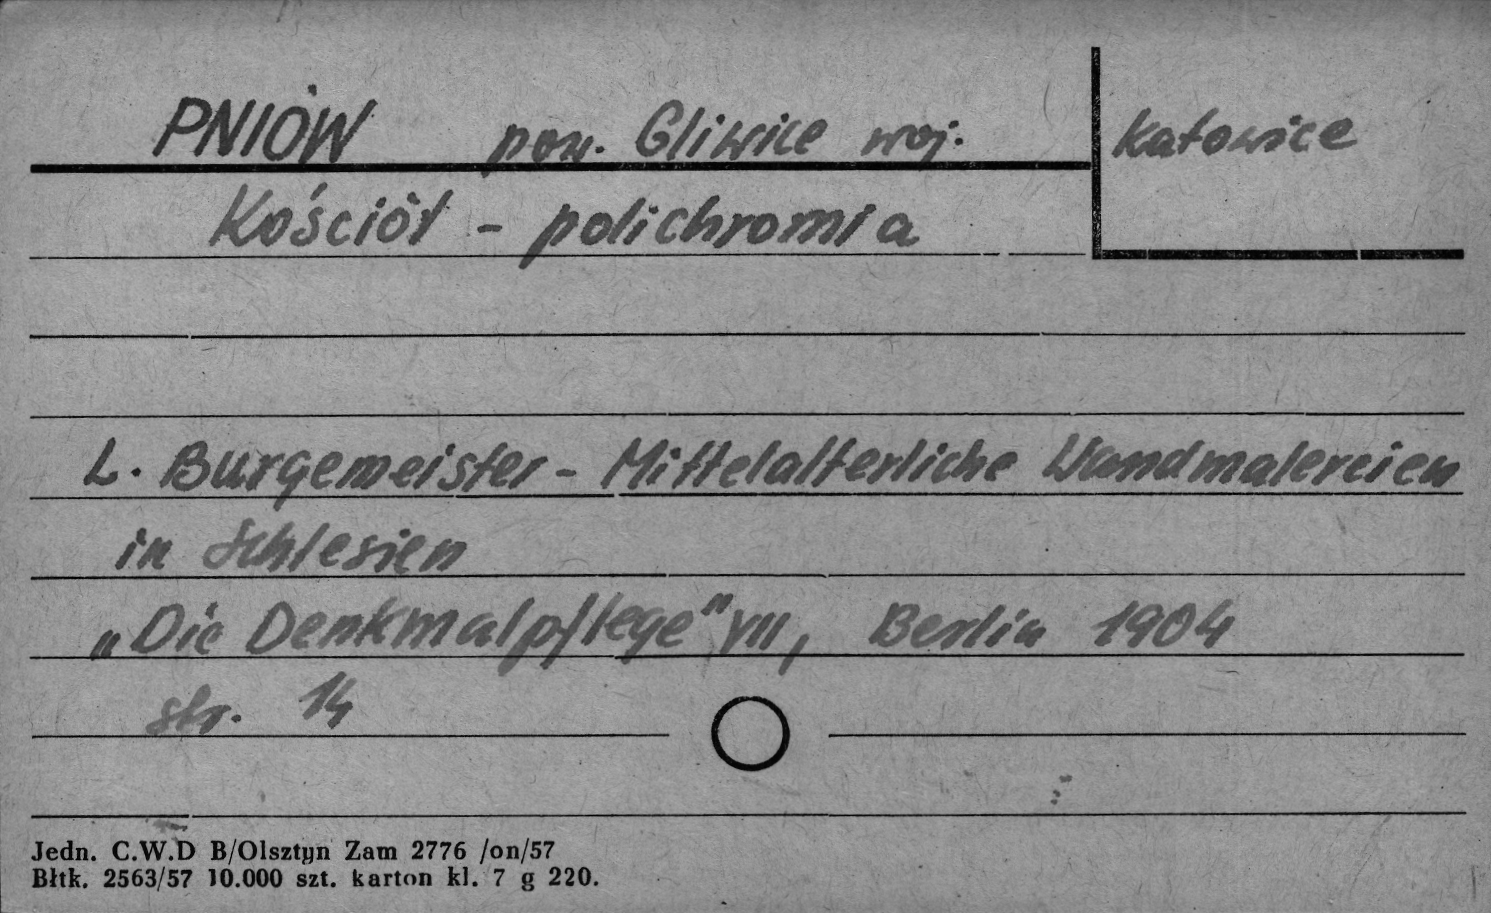 PNIÓW pow. Gliwice woj. Katowice
Kościół - polichromia
L. Burgemeister - Mittelalterliche Wandmalereien
in Schlesien
„Die Denkmalpflege" VII, Berlin 1904
str. 14
Jedn. C.W.D B/Olsztyn Zam 2776 /on/57
Błtk. 2563/57 10.000 szt. karton kl. 7 g 220.